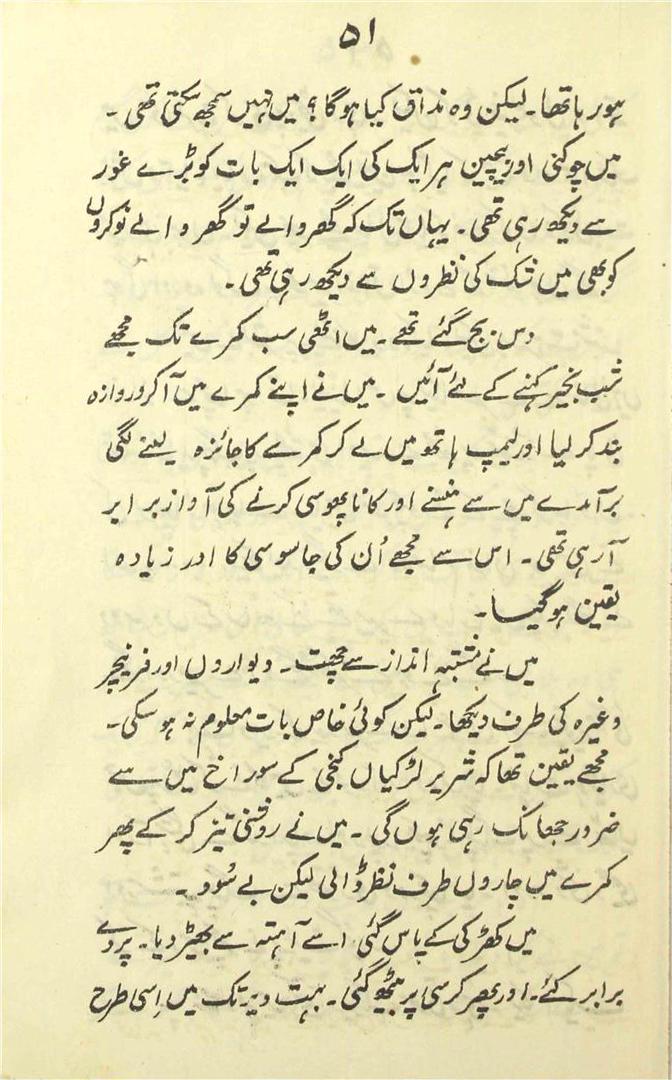 ۵۱
ہورہا تھا۔ لیکن وہ مذاق کیا ہوگا؟ میں نہیں سمجھ سکتی تھی۔
میں چوکنی اور بیچین ہر ایک کی ایک ایک بات کو بڑے غور
سے دیکھ رہی تھی۔ یہاں تک کہ گھر والے تو گھر والے نوکروں
کو بھی میں شک کی نظروں سے دیکھ رہی تھی۔
دس بج گئے تھے۔ میں اٹھی سب کمرے تک مجھے
شب بخیر کہنے کے لئے آئیں۔ میں نے اپنے کمرے میں آکر دروازہ
بند کر لیا اور لیمپ ہاتھ میں لے کر کمرے کا جائزہ لینے لگی
برآمدے میں سے ہنسنے اور کانا پھوسی کرنے کی آواز برابر
آرہی تھی۔ اس سے مجھے اُن کی جاسوسی کا اور زیادہ
یقین ہوگیا۔
میں نے مشتبہ انداز سے چھت۔ دیواروں اور فرنیچر
وغیرہ کی طرف دیکھا۔ لیکن کوئی خاص بات معلوم نہ ہوسکی۔
مجھے یقین تھا کہ شریر لڑکیاں کنجی کے سوراخ میں سے
ضرور جھانک رہی ہوں گی۔ میں نے روشنی تیز کر کے پھر
کمرے میں چاروں طرف نظر ڈالی لیکن بے سُود۔
میں کھڑکی کے پاس گئی اسے آہستہ سے بھیڑ دیا۔ پردے
برابر کئے۔ اور پھر کرسی پر بیٹھ گئی۔ بہت دیر تک میں اِسی طرح